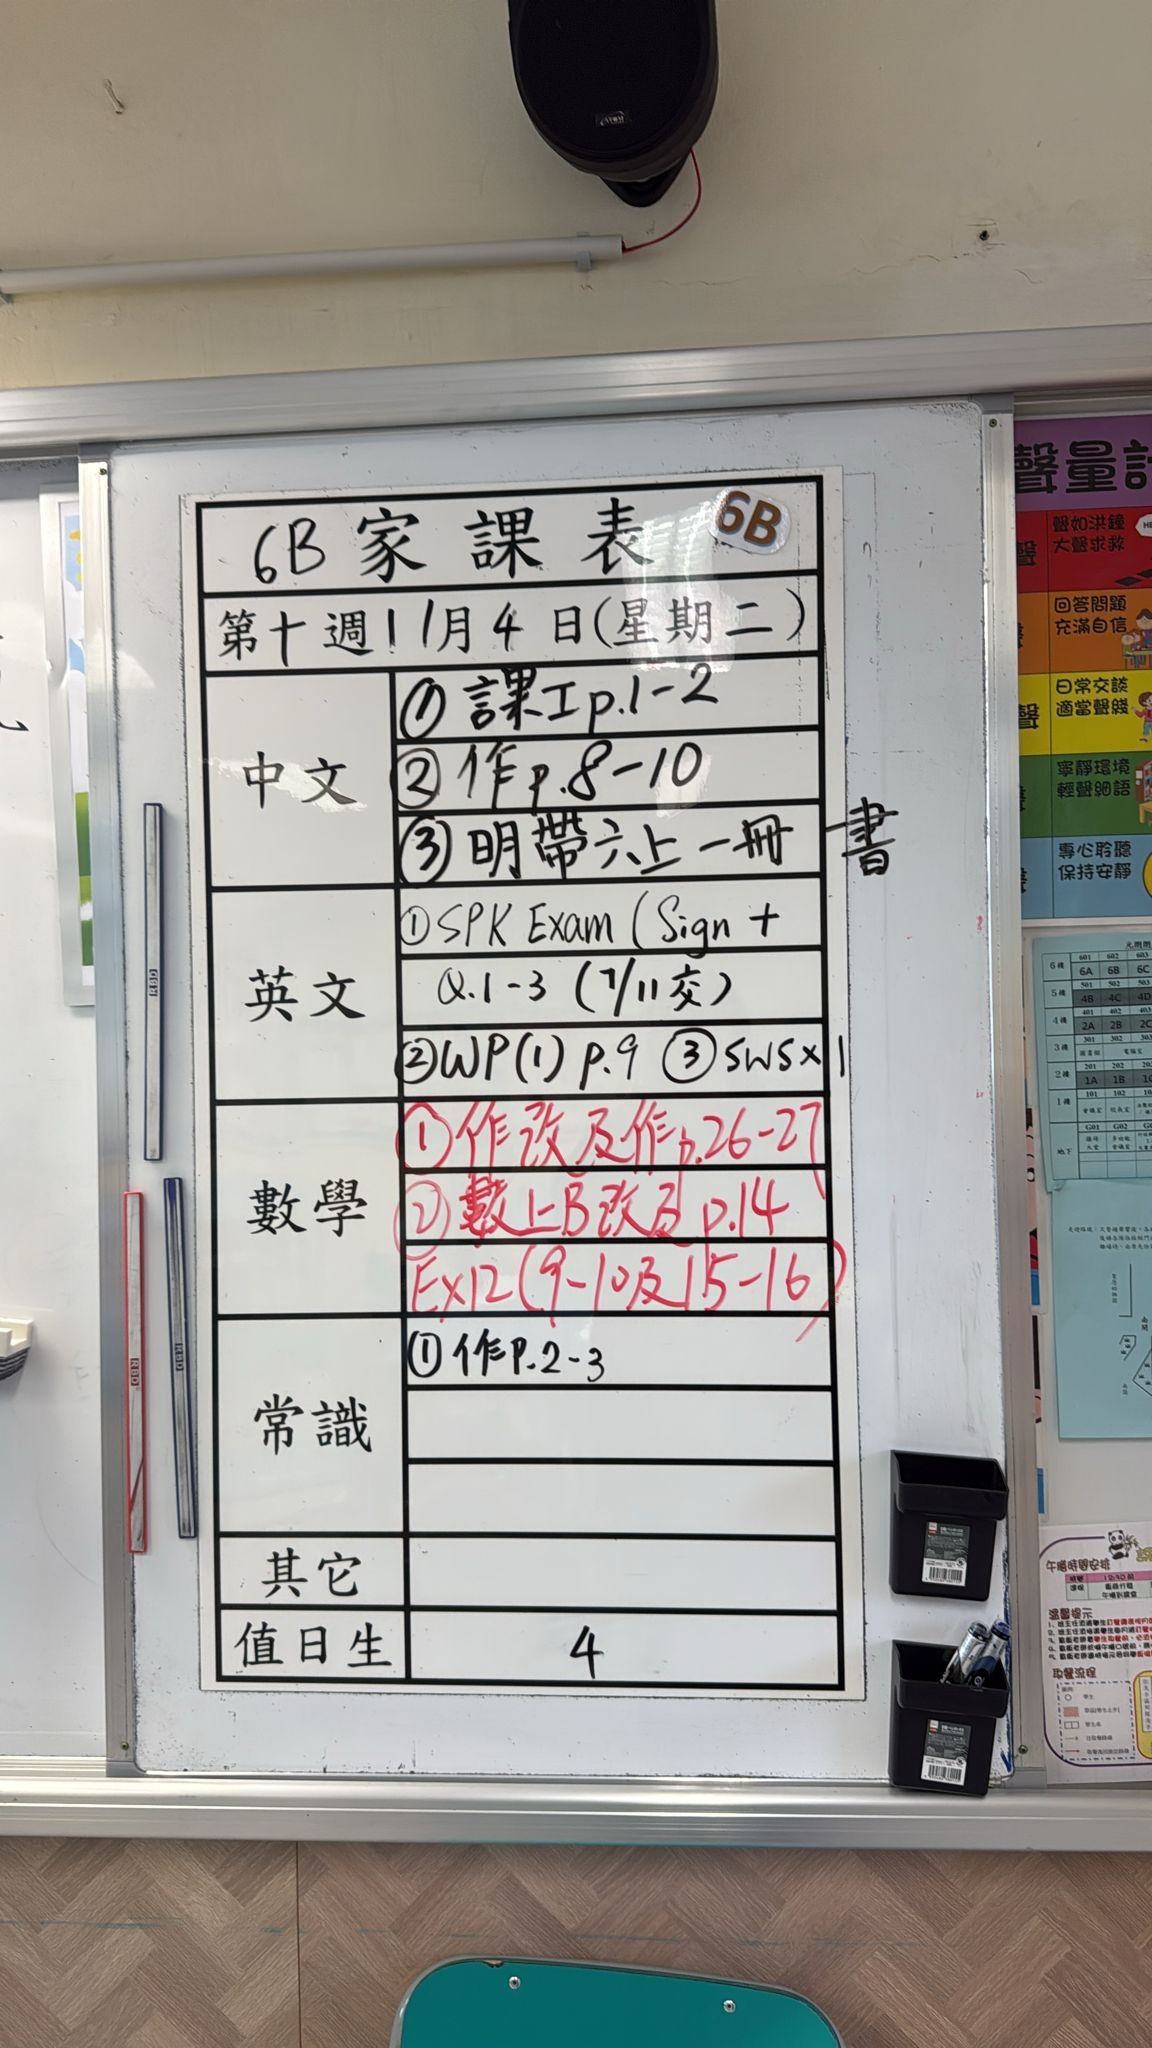 ATOM
6B 家課表
6B
第十週11月4日(星期二)
中文
① 課工p.1-2
② 作p.8-10
③ 明帶六上一冊書
英文
① SPK Exam (Sign +
Q.1-3 (7/11交)
② WP(1) p.9 ③ SWS×1
數學
① 作改及作p.26-27
② 數上B改及p.14
Ex12(9-10及15-16)
常識
① 作P.2-3
其它
值日生
4
聲量計
聲如洪鐘
大聲求救
回答問題
充滿自信
日常交談
適當聲綫
寧靜環境
輕聲細語
專心聆聽
保持安靜
6樓 601 602 603
6A 6B 6C
5樓 501 502 503
4B 4C 4D
4樓 401 402 403
2A 2B 2C
3樓 301 302 303
2樓 201 202
1A 1B
1樓 101 102
地下 G01 G02
午膳時間安排
溫馨提示
取餐流程